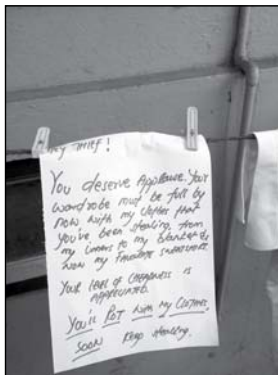 Hey THIEF!
You deserve Applause. Your
wardrobe must be full by
now with my clothes that
you've been stealing from
my to my blankets,
now my favourite
YOUR level of CHEAPNESS is
APPRECIATED.
You'll ROT with my CLOTHES
SOON keep stealing.